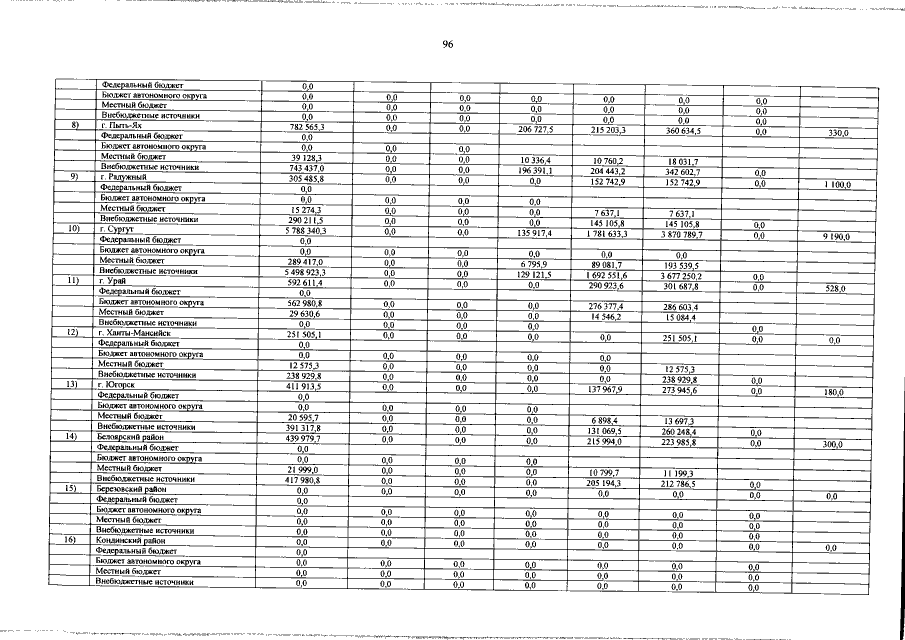 96
Федеральный бюджет 0,0
Бюджет автономного округа 0,0 0,0 0,0 0,0 0,0 0,0 0,0
Местный бюджет 0,0 0,0 0,0 0,0 0,0 0,0 0,0
Внебюджетные источники 0,0 0,0 0,0 0,0 0,0 0,0 0,0
8) г. Пыть-Ях 782 565,3 0,0 0,0 206 727,5 215 203,3 360 634,5 0,0 330,0
Федеральный бюджет 0,0
Бюджет автономного округа 0,0 0,0 0,0
Местный бюджет 39 128,3 0,0 0,0 10 336,4 10 760,2 18 031,7
Внебюджетные источники 743 437,0 0,0 0,0 196 391,1 204 443,2 342 602,7 0,0
9) г. Радужный 305 485,8 0,0 0,0 0,0 152 742,9 152 742,9 0,0 1 100,0
Федеральный бюджет 0,0
Бюджет автономного округа 0,0 0,0 0,0 0,0
Местный бюджет 15 274,3 0,0 0,0 0,0 7 637,1 7 637,1
Внебюджетные источники 290 211,5 0,0 0,0 0,0 145 105,8 145 105,8 0,0
10) г. Сургут 5 788 340,3 0,0 0,0 135 917,4 1 781 633,3 3 870 789,7 0,0 9 190,0
Федеральный бюджет 0,0
Бюджет автономного округа 0,0 0,0 0,0 0,0 0,0 0,0
Местный бюджет 289 417,0 0,0 0,0 6 795,9 89 081,7 193 539,5
Внебюджетные источники 5 498 923,3 0,0 0,0 129 121,5 1 692 551,6 3 677 250,2 0,0
11) г. Урай 592 611,4 0,0 0,0 0,0 290 923,6 301 687,8 0,0 528,0
Федеральный бюджет 0,0
Бюджет автономного округа 562 980,8 0,0 0,0 0,0 276 377,4 286 603,4
Местный бюджет 29 630,6 0,0 0,0 0,0 14 546,2 15 084,4
Внебюджетные источники 0,0 0,0 0,0 0,0 0,0
12) г. Ханты-Мансийск 251 505,1 0,0 0,0 0,0 0,0 251 505,1 0,0 0,0
Федеральный бюджет 0,0
Бюджет автономного округа 0,0 0,0 0,0 0,0 0,0
Местный бюджет 12 575,3 0,0 0,0 0,0 0,0 12 575,3
Внебюджетные источники 238 929,8 0,0 0,0 0,0 0,0 238 929,8 0,0
13) г. Югорск 411 913,5 0,0 0,0 0,0 137 967,9 273 945,6 0,0 180,0
Федеральный бюджет 0,0
Бюджет автономного округа 0,0 0,0 0,0 0,0
Местный бюджет 20 595,7 0,0 0,0 0,0 6 898,4 13 697,3
Внебюджетные источники 391 317,8 0,0 0,0 0,0 131 069,5 260 248,4 0,0
14) Белоярский район 439 979,7 0,0 0,0 0,0 215 994,0 223 985,8 0,0 300,0
Федеральный бюджет 0,0
Бюджет автономного округа 0,0 0,0 0,0 0,0
Местный бюджет 21 999,0 0,0 0,0 0,0 10 799,7 11 199,3
Внебюджетные источники 417 980,8 0,0 0,0 0,0 205 194,3 212 786,5 0,0
15) Березовский район 0,0 0,0 0,0 0,0 0,0 0,0 0,0 0,0
Федеральный бюджет 0,0
Бюджет автономного округа 0,0 0,0 0,0 0,0 0,0 0,0 0,0
Местный бюджет 0,0 0,0 0,0 0,0 0,0 0,0 0,0
Внебюджетные источники 0,0 0,0 0,0 0,0 0,0 0,0 0,0
16) Кондинский район 0,0 0,0 0,0 0,0 0,0 0,0 0,0 0,0
Федеральный бюджет 0,0
Бюджет автономного округа 0,0 0,0 0,0 0,0 0,0 0,0 0,0
Местный бюджет 0,0 0,0 0,0 0,0 0,0 0,0 0,0
Внебюджетные источники 0,0 0,0 0,0 0,0 0,0 0,0 0,0